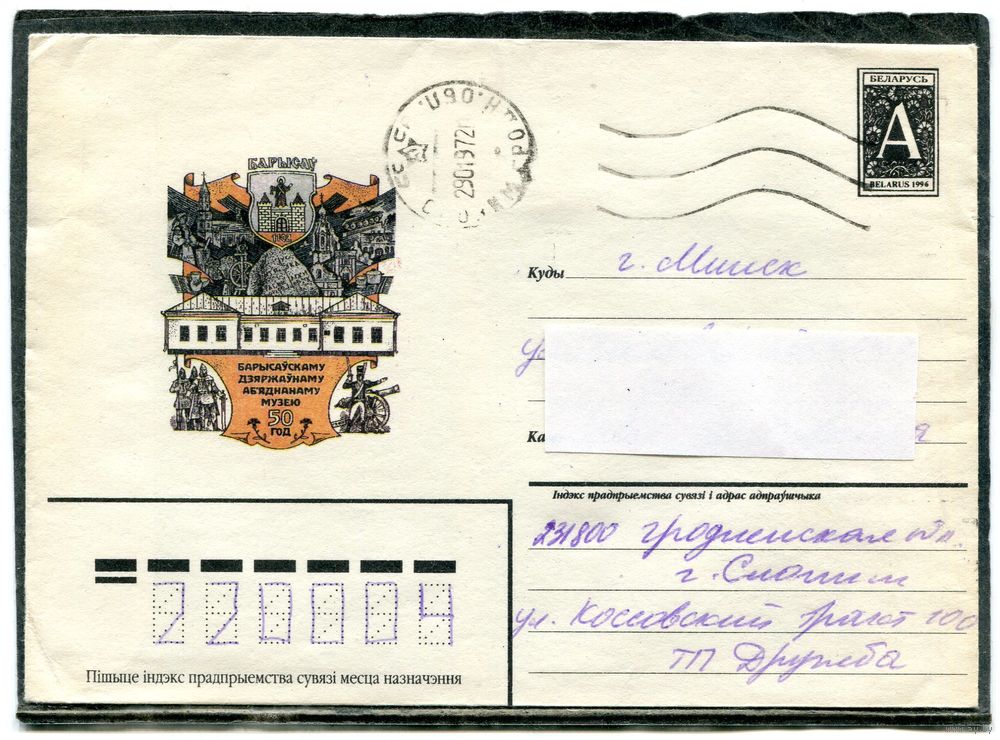 БЕЛАРУСЬ
А
BELARUS 1996
290197
БАРЫСАЎ
1102
БАРЫСАЎСКАМУ
ДЗЯРЖАЎНАМУ
АБ'ЯДНАНАМУ
МУЗЕЮ
50
ГОД
Куды
г. Минск
Індэкс прадпрыемства сувязі і адрас адпраўшчыка
231800 Гродненская обл.
г. Слоним
ул. Коссовский тракт 100
ТП Дружба
220004
Пішыце індэкс прадпрыемства сувязі месца назначэння